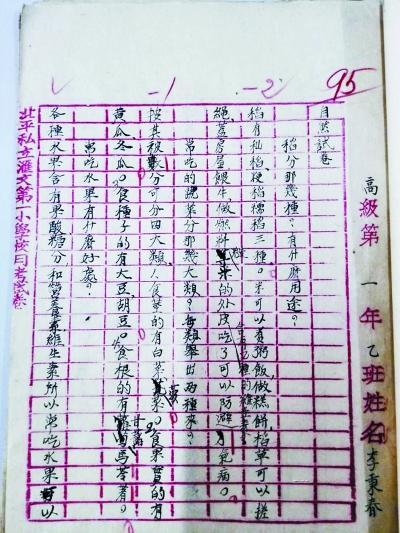 95
-2
-1
高級第一年乙班姓名李東春
自然試卷
稻分那幾種?有什麼用途。
稻有秈稻、粳稻、糯稻三種。米可以煮粥飯,做糕餅,稻草可以搓
繩,蓋房屋,餵牛,做燃料。的外皮吃了可以防避病。
常吃的蔬菜分那幾大類?每類舉出兩種來。
按其被食部分可分四大類,食葉的有白菜、菠菜。食果實的有
黃瓜、冬瓜。食種子的有大豆、胡豆。食根的有甘薯、馬苓薯。
常吃水果有什麼好處?
各種水果含有果酸糖分和營養素維生素所以常吃水果可以
北平私立滙文第一小學校月考試卷